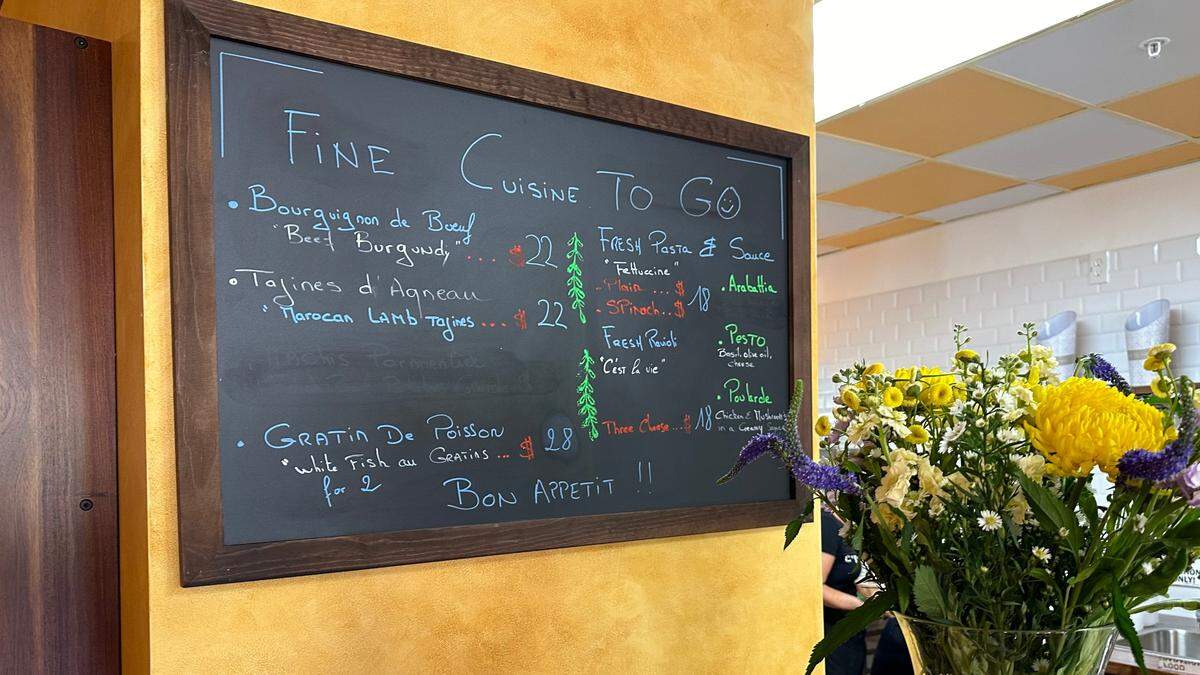 FiNE CUISINE TO GO
• Bourguignon de Bœuf
"Beef Burgundy" ... $22
• Tajines d'Agneau
"Marocan LAMB Tajines ... $ 22
• GRATIN DE POISSON
"White Fish au GRATINS ... $ 28
for 2
FRESH Pasta & Sauce
"Fettuccine"
- Plain ... $
- SPinach .. $ 18
FRESH Ravioli
"C'est la vie"
Three Cheese ... $ 18
• Arabattia
• PESTO
Basil, olive oil,
cheese
• Poularde
Chicken & Mushrooms
in a Creamy Sauce
BON APPETIT !!
ONLY!